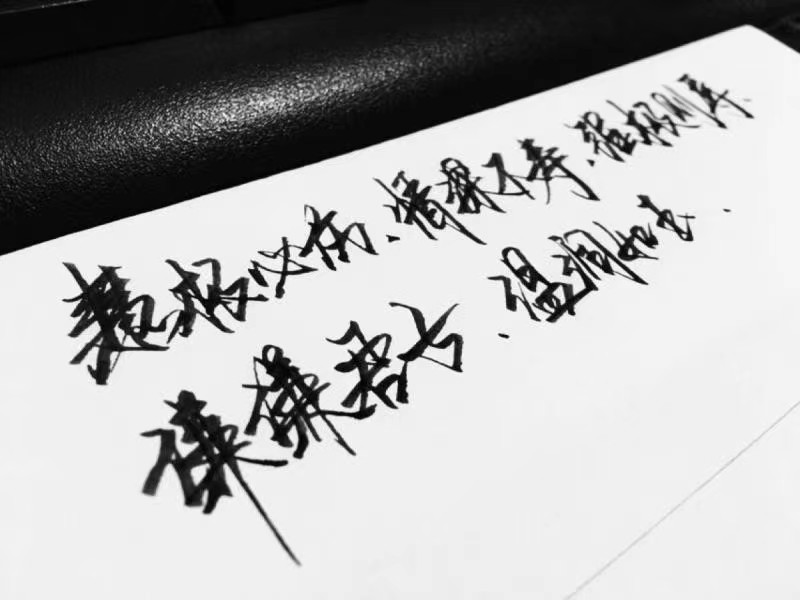 慧极必伤、情深不寿、强极则辱、
谦谦君子、温润如玉.